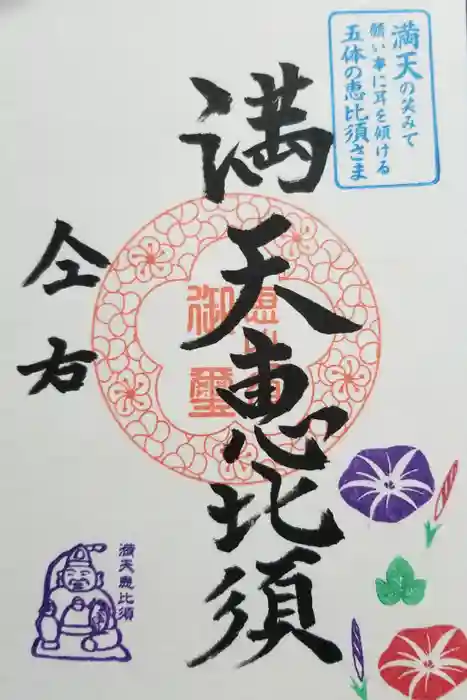 満天の笑みて
願い事に耳を傾ける
五体の恵比須さま
満天恵比須
仝右
御璽
満天恵比須